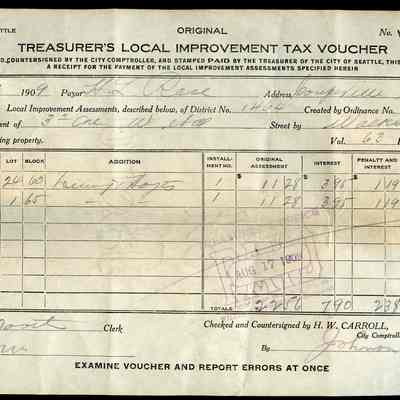 TTLE ORIGINAL No.
TREASURER'S LOCAL IMPROVEMENT TAX VOUCHER
D, COUNTERSIGNED BY THE CITY COMPTROLLER, AND STAMPED PAID BY THE TREASURER OF THE CITY OF SEATTLE, THIS
A RECEIPT FOR THE PAYMENT OF THE LOCAL IMPROVEMENT ASSESSMENTS SPECIFIED HEREIN
1909 Payor Address Coupeville
Local Improvement Assessments, described below, of District No. Created by Ordinance No.
ment of 3rd Ave W Street by Vol. 63
ing property.
LOT BLOCK ADDITION INSTALL-MENT NO. ORIGINAL ASSESSMENT INTEREST PENALTY AND INTEREST
24 1 $ 11 28 $ 3 95 $ 1 19
1 65 1 11 28 3 95 1 19
AUG 17 1909
TOTALS 22 56 7 90 2 38
Clerk Checked and Countersigned by H. W. CARROLL,
City Comptro
By Johnson
EXAMINE VOUCHER AND REPORT ERRORS AT ONCE